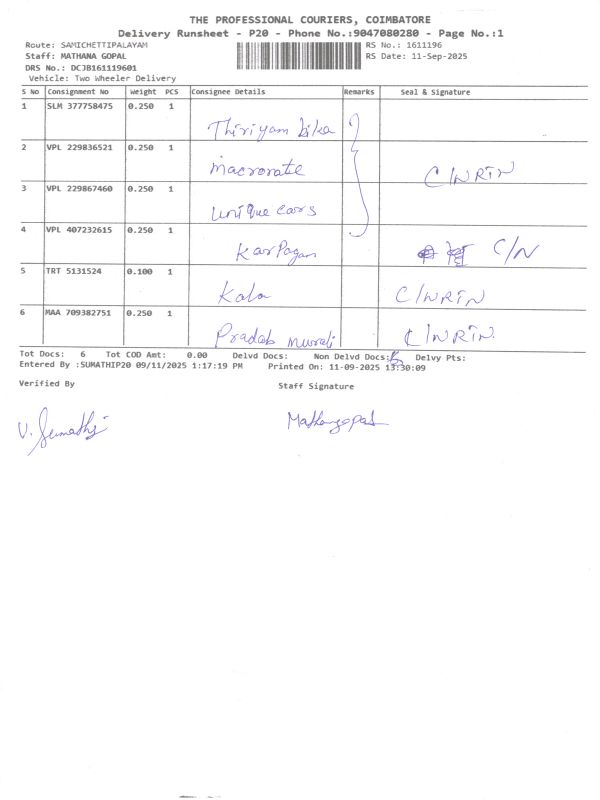 THE PROFESSIONAL COURIERS, COIMBATORE
Delivery Runsheet - P20 - Phone No.:9047080280 - Page No.:1
Route: SAMICHETTIPALAYAM RS No.: 1611196
Staff: MATHANA GOPAL RS Date: 11-Sep-2025
DRS No.: DCJB161119601
Vehicle: Two Wheeler Delivery
S No Consignment No Weight PCS Consignee Details Remarks Seal & Signature
1 SLM 377758475 0.250 1
Thiriyam bika
2 VPL 229836521 0.250 1
macrovate C/NRIN
3 VPL 229867460 0.250 1
Unique cars
4 VPL 407232615 0.250 1
Karpagam C/N
5 TRT 5131524 0.100 1
Kala C/NRIN
6 MAA 709382751 0.250 1
Pradeb murali C/NRIN
Tot Docs: 6 Tot COD Amt: 0.00 Delvd Docs: Non Delvd Docs: Delvy Pts:
Entered By :SUMATHIP20 09/11/2025 1:17:19 PM Printed On: 11-09-2025 13:30:09
Verified By Staff Signature
V. Sumathi Mathanagopal